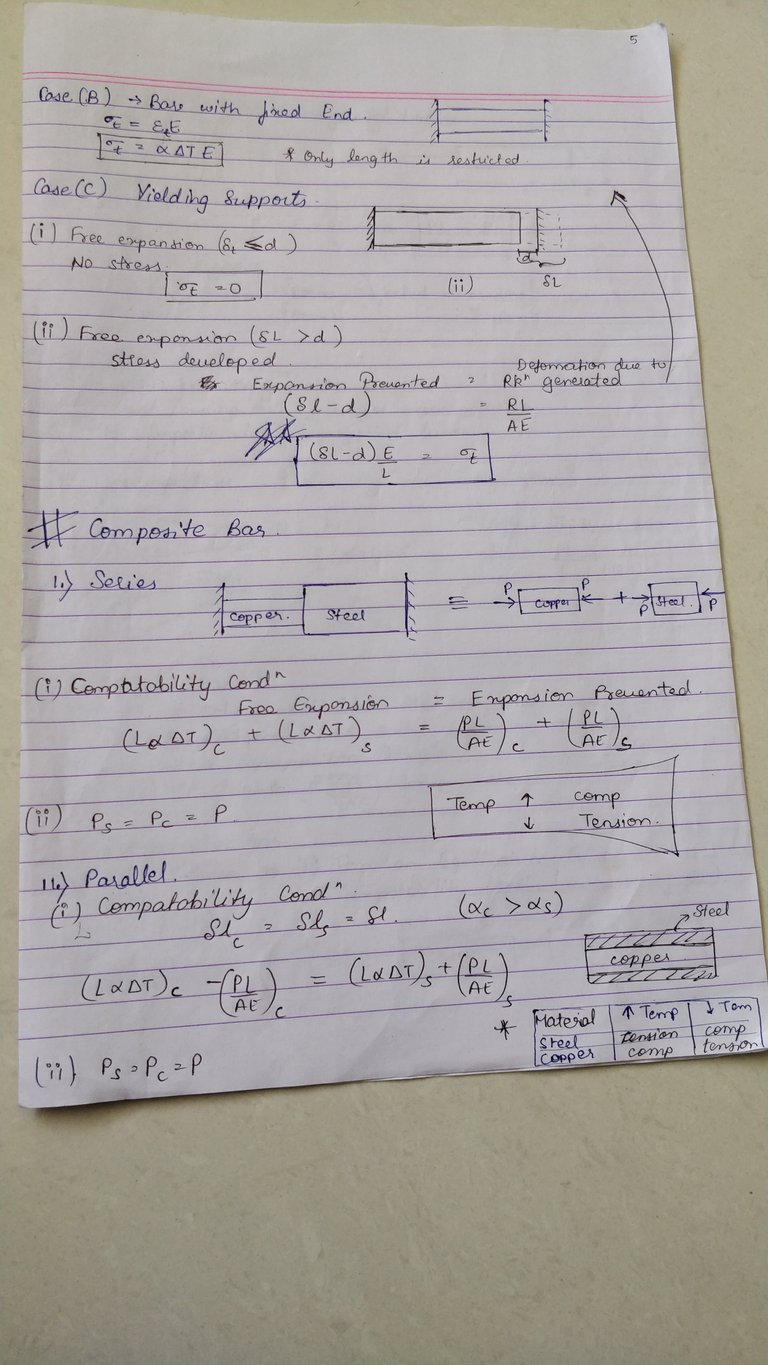 5
Case (B) → Bare with fixed End.
σt = εt E
σt = α ΔT E
* Only length is restricted.
Case (C) Yielding Supports.
(i) Free expansion (δt ≤ d)
No stress.
σt = 0
d
δL
(ii)
(ii) Free expansion (δL > d)
stress developed.
Expansion Prevented = Deformation due to
RKⁿ generated
(δl - d) = RL/AE
(δl - d) E/L = σt
# Composite Bar.
1.) Series
copper. Steel ≡ P copper P + P Steel. P
(i) Comptatability Condⁿ
Free Expansion = Expansion Prevented.
(LαΔT)c + (LαΔT)s = (PL/AE)c + (PL/AE)s
(ii) Ps = Pc = P
Temp ↑ comp
↓ Tension.
11.) Parallel.
(i) Compatability Condⁿ.
δlc = δls = δl. (αc > αs)
Steel
copper
(LαΔT)c - (PL/AE)c = (LαΔT)s + (PL/AE)s
* Material ↑ Temp ↓ Tem
Steel tension comp
copper comp tension
(ii) Ps = Pc = P